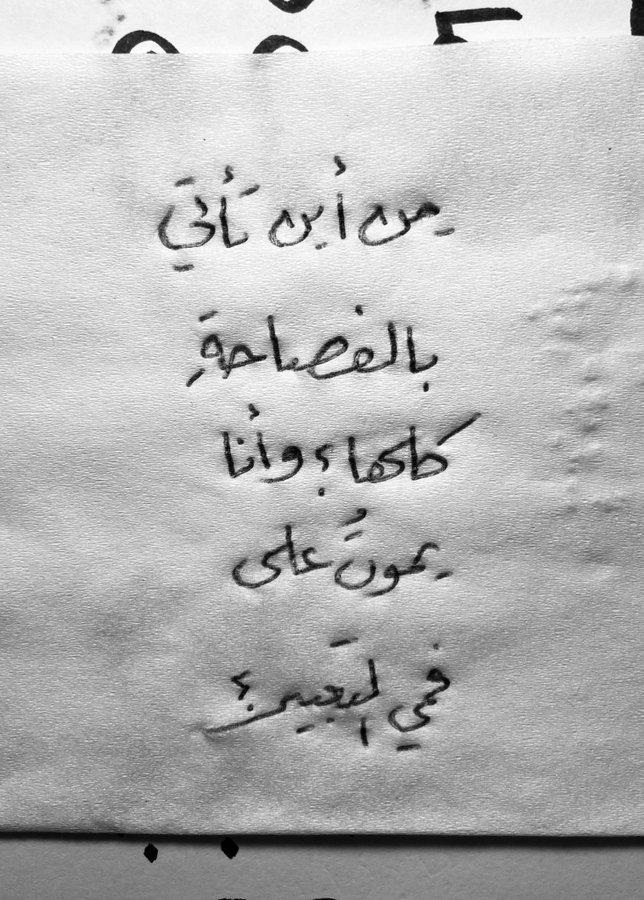 من أين تأتي
بالفصاحةِ
كلها؟ وأنا
يموتُ على
فمي التعبير؟